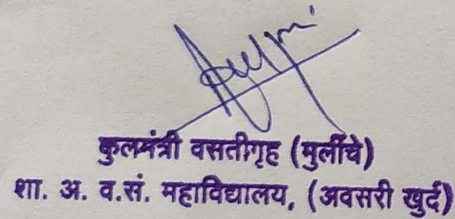 कुलमंत्री वसतीगृह (मुलींचे)
शा. अ. व.सं. महाविद्यालय, (अवसरी खुर्द)